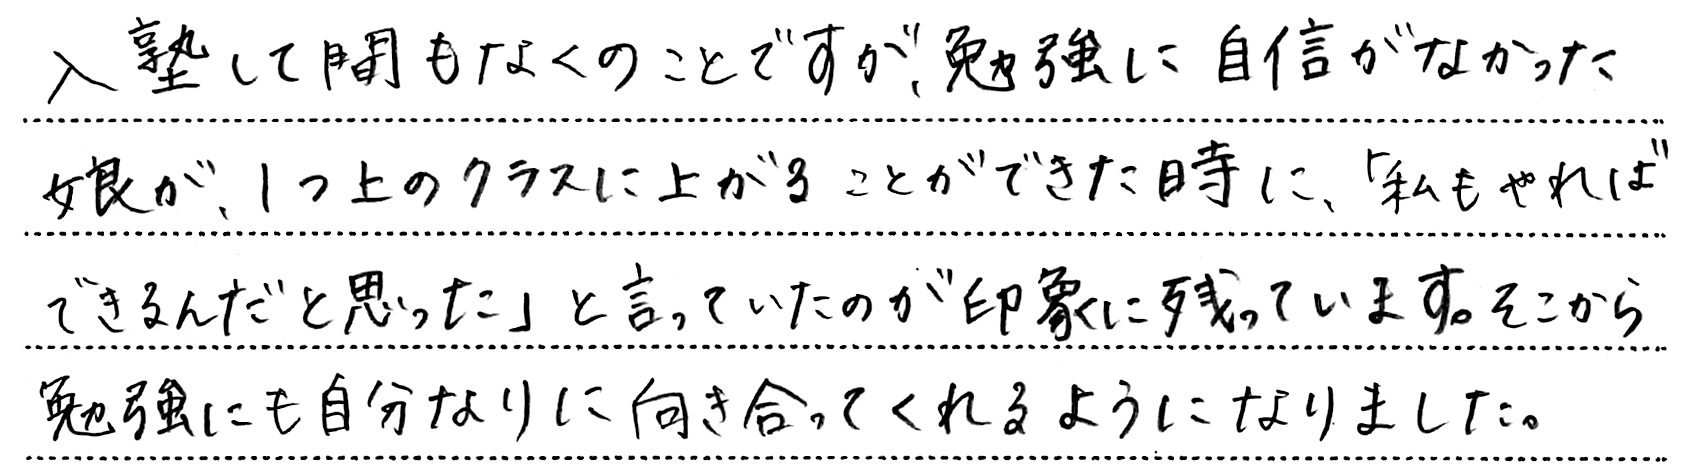 入塾して間もなくのことですが、勉強に自信がなかった
娘が、1つ上のクラスに上がることができた時に、「私もやれば
できるんだと思った」と言っていたのが印象に残っています。そこから
勉強にも自分なりに向き合ってくれるようになりました。